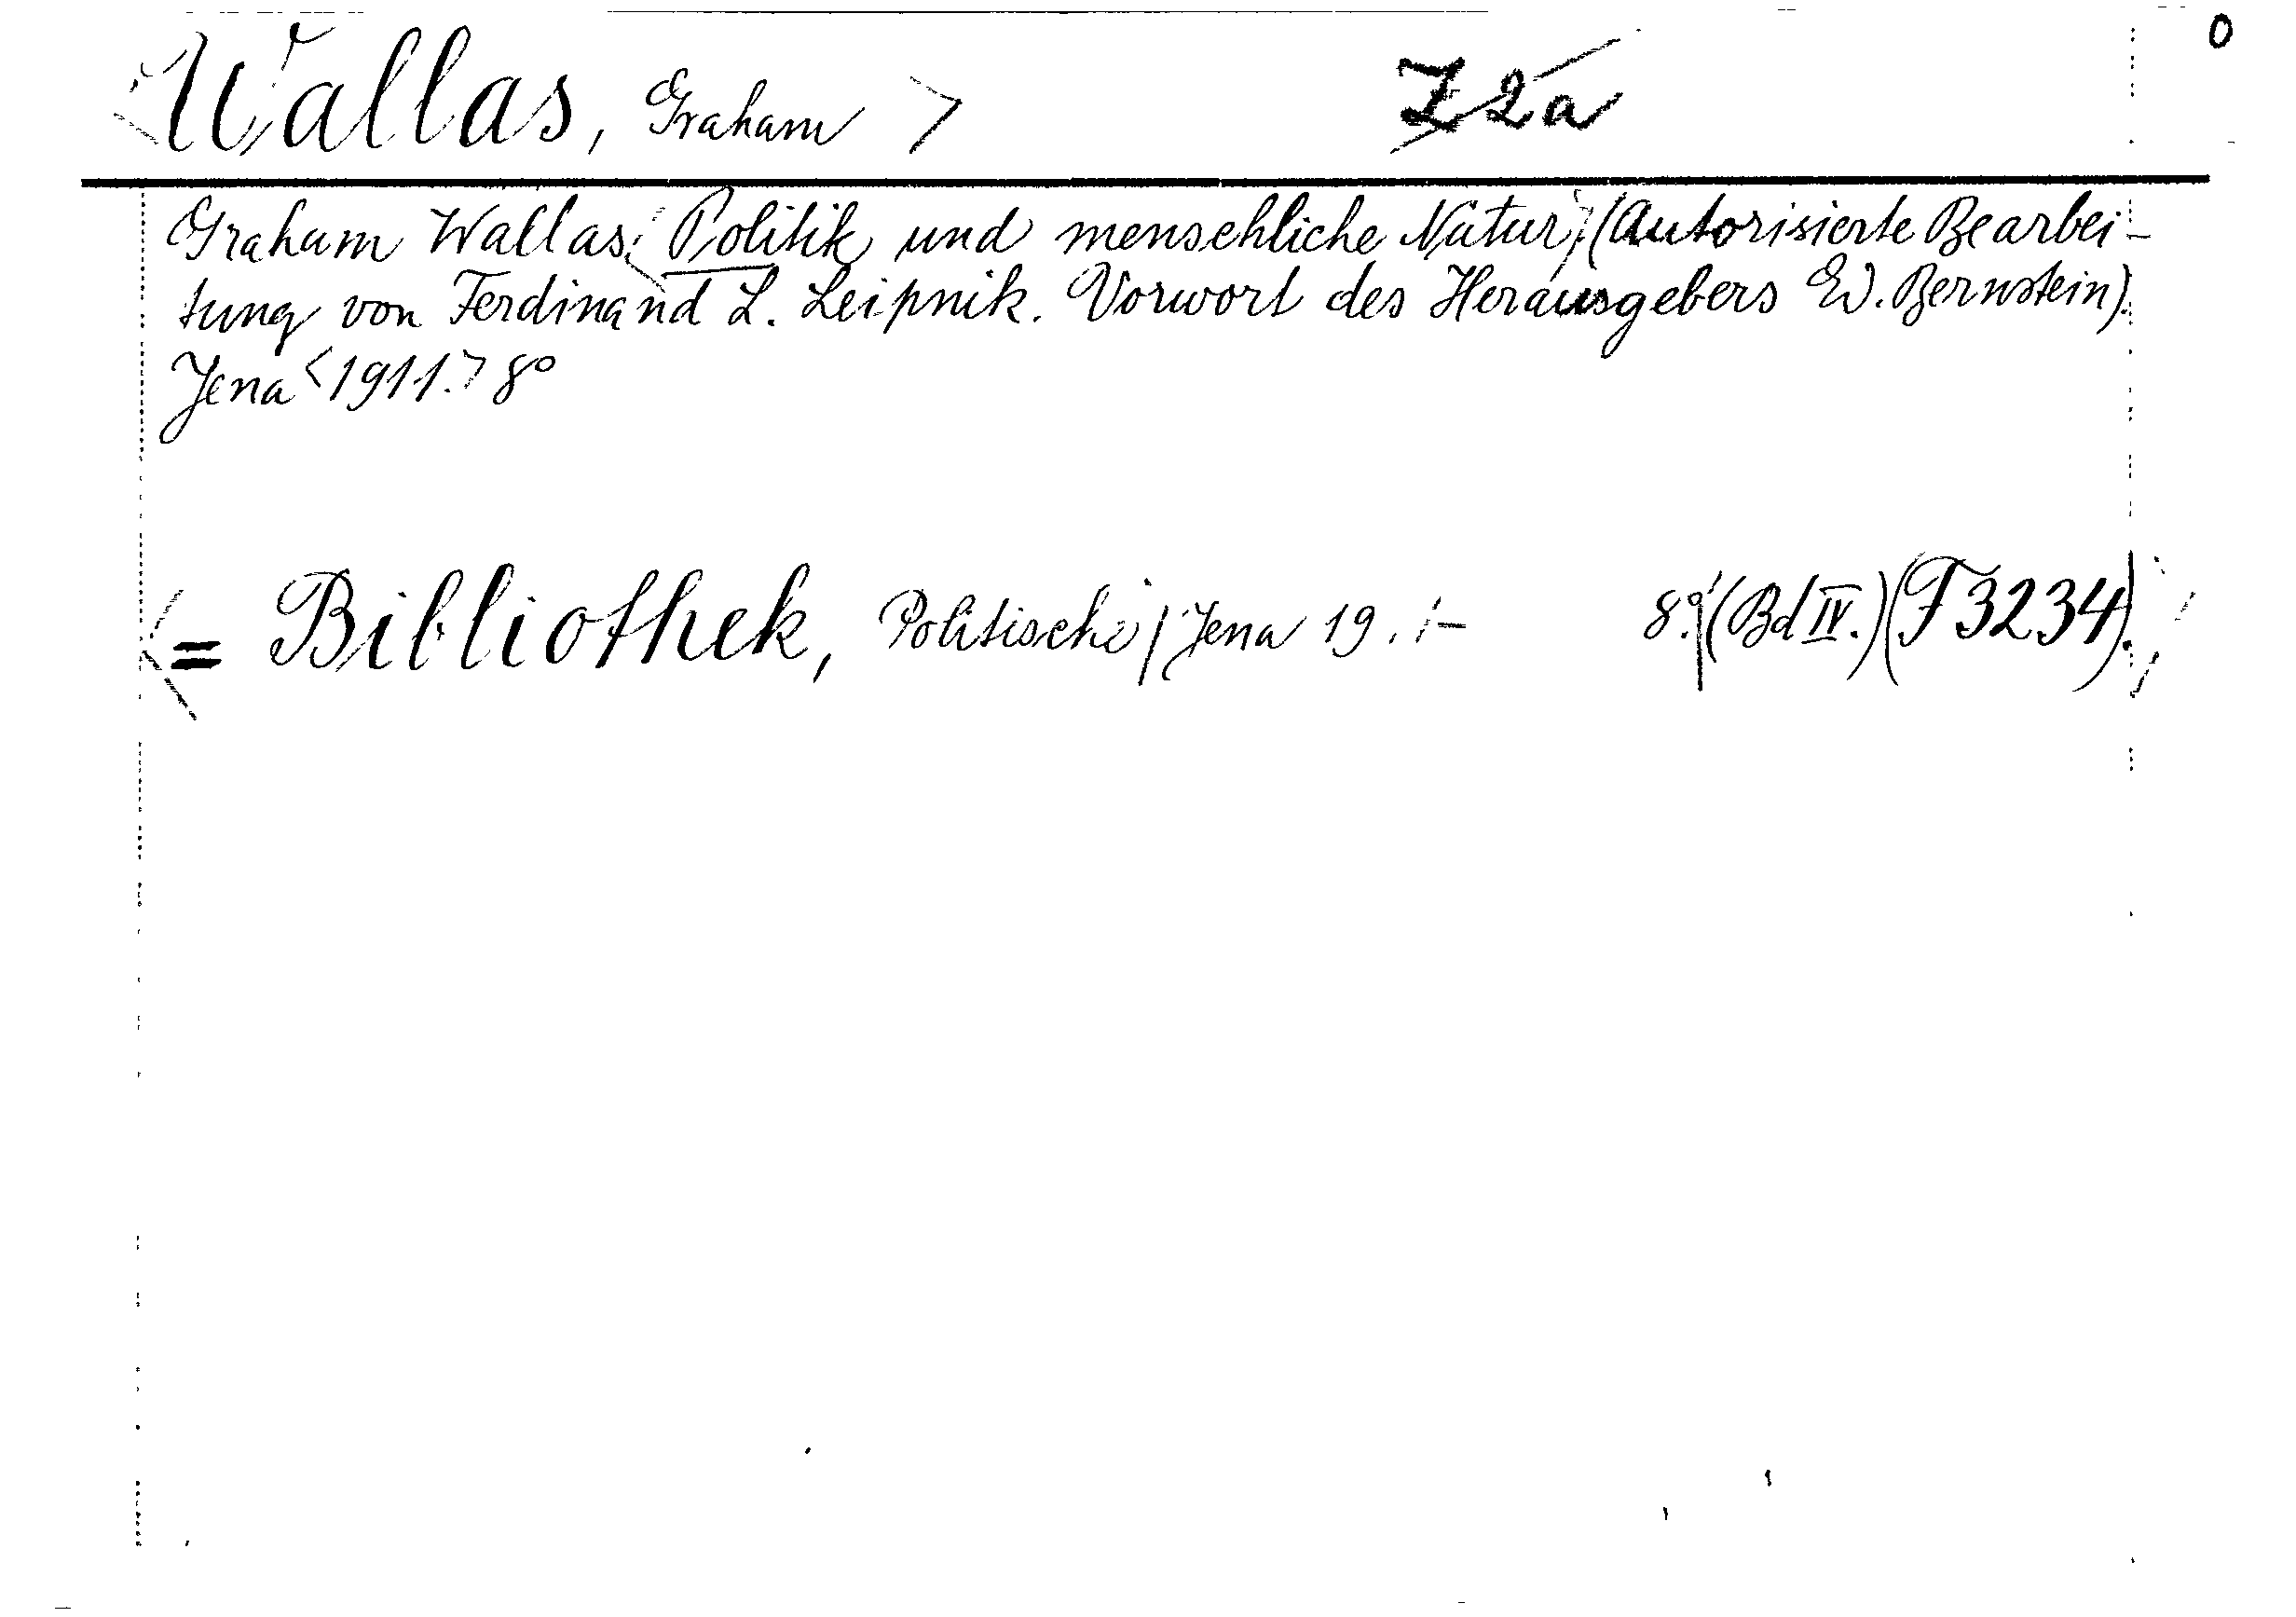 <Wallas, Graham> Z2a 0
Graham Wallas: Politik und menschliche Natur; (Autorisierte Bearbei-
tung von Ferdinand L. Leipnik. Vorwort des Herausgebers Ed. Bernstein).
Jena <1911.> 8°
<= Bibliothek, Politische / Jena 19..- 8.° (Bd IV.) (F3234).>